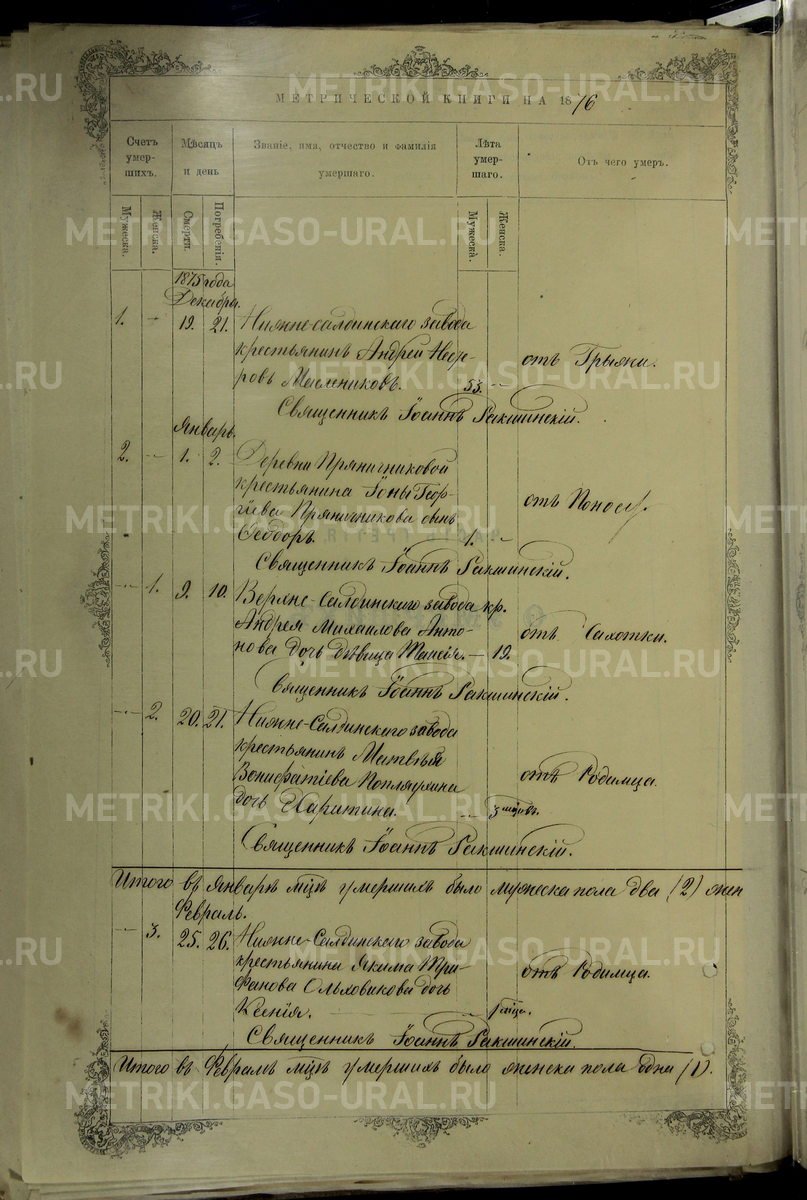 МЕТРИЧЕСКОЙ КНИГИ НА 1876
Счетъ умер-шихъ.
Мѣсяцъ и день
Званіе, имя, отчество и фамилія умершаго.
Лѣта умер-шаго.
Отъ чего умеръ.
Мужеска.
Женска.
Смерти.
Погребенія.
Мужеска.
Женска.
1875 года
Декабрь.
1. 19. 21. Нижне-салдинскаго завода
крестьянинъ Андрей
ровъ 53. отъ Грыжи.
Священникъ Іоаннъ Ракшинскій.
Январь.
2. 1. 2. Деревни Пряничниковой
крестьянина Іоны Геор-
гіева Пряничникова сынъ отъ Поноса.
Ѳеодоръ. 1.
Священникъ Іоаннъ Ракшинскій.
1. 9. 10. Верхне-Салдинскаго завода кр.
Андрея Михаилова Анто-
нова дочь дѣвица Таисія. 19. отъ Сахотки.
Священникъ Іоаннъ Ракшинскій.
2. 20. 21. Нижне-Салдинскаго завода
крестьянинъ Матвѣя
Вонифатіева отъ Родимца.
дочь Харитина. 3 мцовъ.
Священникъ Іоаннъ Ракшинскій.
Итого въ Январѣ мцѣ умершихъ было мужеска пола два (2) жен
Февраль.
3. 25. 26. Нижне-Салдинскаго завода
крестьянина Якима Три-
фанова Ольховикова дочь отъ Родимца.
Ксенія.
Священникъ Іоаннъ Ракшинскій.
Итого въ Февралѣ мцѣ умершихъ было женска пола одна (1).
METRIKI.GASO-URAL.RU